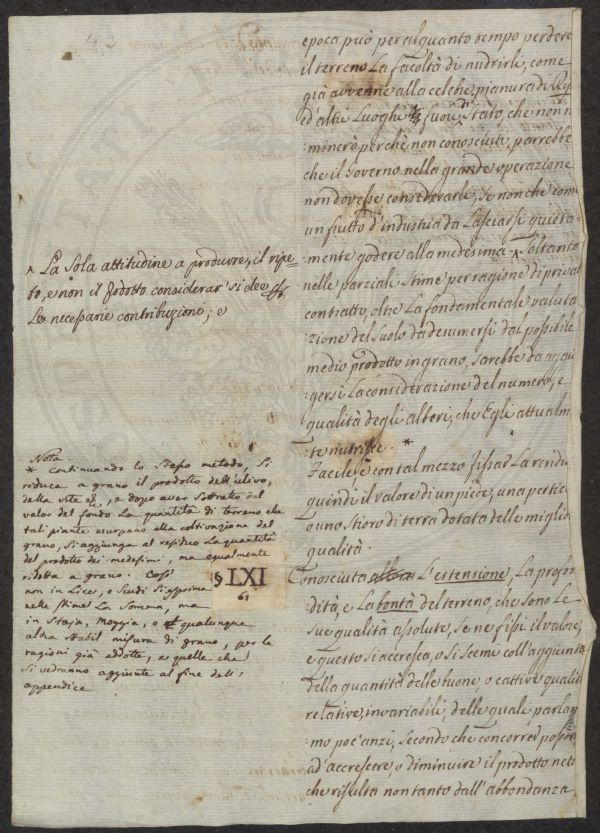 epoca può per alquanto tempo perdere
il terreno La facoltà di nudrirli, come
già avvenne alla celebre pianura di
ed' altri Luoghi fuori Stato, che non n
minerò perchè non conosciuti, parrebbe
che il Governo nella grande operazione
non dovesse considerarli, se non che com
un frutto d'industria da Lasciarsi quieta
mente godere alla medesima ^ Soltanto
nelle parziali Stime per ragione di privat
contratto, oltre La fondamentale valuta
zione del Suolo da desumersi dal possibile
medio prodotto in grano, sarebbe da aggiu
gersi La considerazione del numero, e
qualità degli alberi, che Egli attualm
te nutrisce. *
Facile è con tal mezzo fissar La rendi
quindi il valore di un piede, una pertic
o uno Stioro di terra dotata delle miglio
qualità.
Conosciuta L'estensione, La profon
dità, e La bontà del terreno, che sono Le
sue qualità assolute, se ne fissi il valore,
e questo si accresca, o si scemi coll'aggiunta
della quantità delle buone, o cattive qualit
relative, invariabili, delle quali parlam
mo poc'anzi, secondo che concorrer posson
ad'accrescere, o diminuire il prodotto nett
che risulta non tanto dall'abbondanza,
^ La Sola attitudine a produrre, il ripe=
to, e non il Prodotto considerar' si dee
Le necessarie contribuzioni; e
Nota.
* continuando lo stesso metodo, Si
riduca a grano il prodotto dell'ulivo,
della vite &c, e dopo aver Sottratto dal
valor del fondo La quantità di terreno che
tali piante usurpano alla coltivazione del
grano, Si aggiunga al residuo La quantità
del prodotto dei medesimi, ma egualmente
ridotta a grano. Così
non in Lire, o Scudi Si esprima
nelle stime La Somma, ma
in Staja, moggia, o qualunque
altra Stabil misura di grano, per le
ragioni già addotte, e quelle che
Si vedranno aggiunte al fine dell'
appendice
§ LXI
61